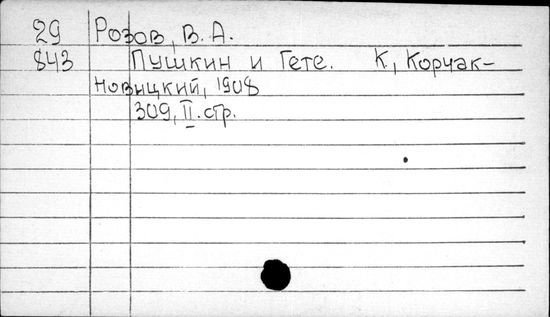 29 Розов, В.А.
843 Пушкин и Гете. К, Корчак-
Новицкий, 1908
309, II. стр.